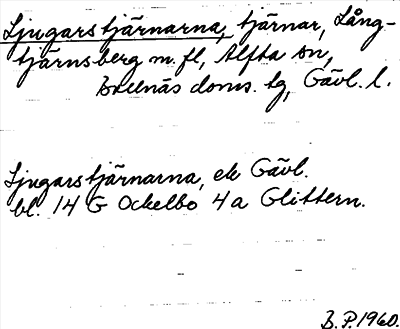 Ljugarstjärnarna, tjärnar, Lång-
tjärnsberg m. fl, Alfta sn,
Bollnäs doms. tg, Gävl. l.
Ljugarstjärnarna, ek Gävl.
bl. 14 G Ockelbo 4a Glittern.
B. P. 1960.